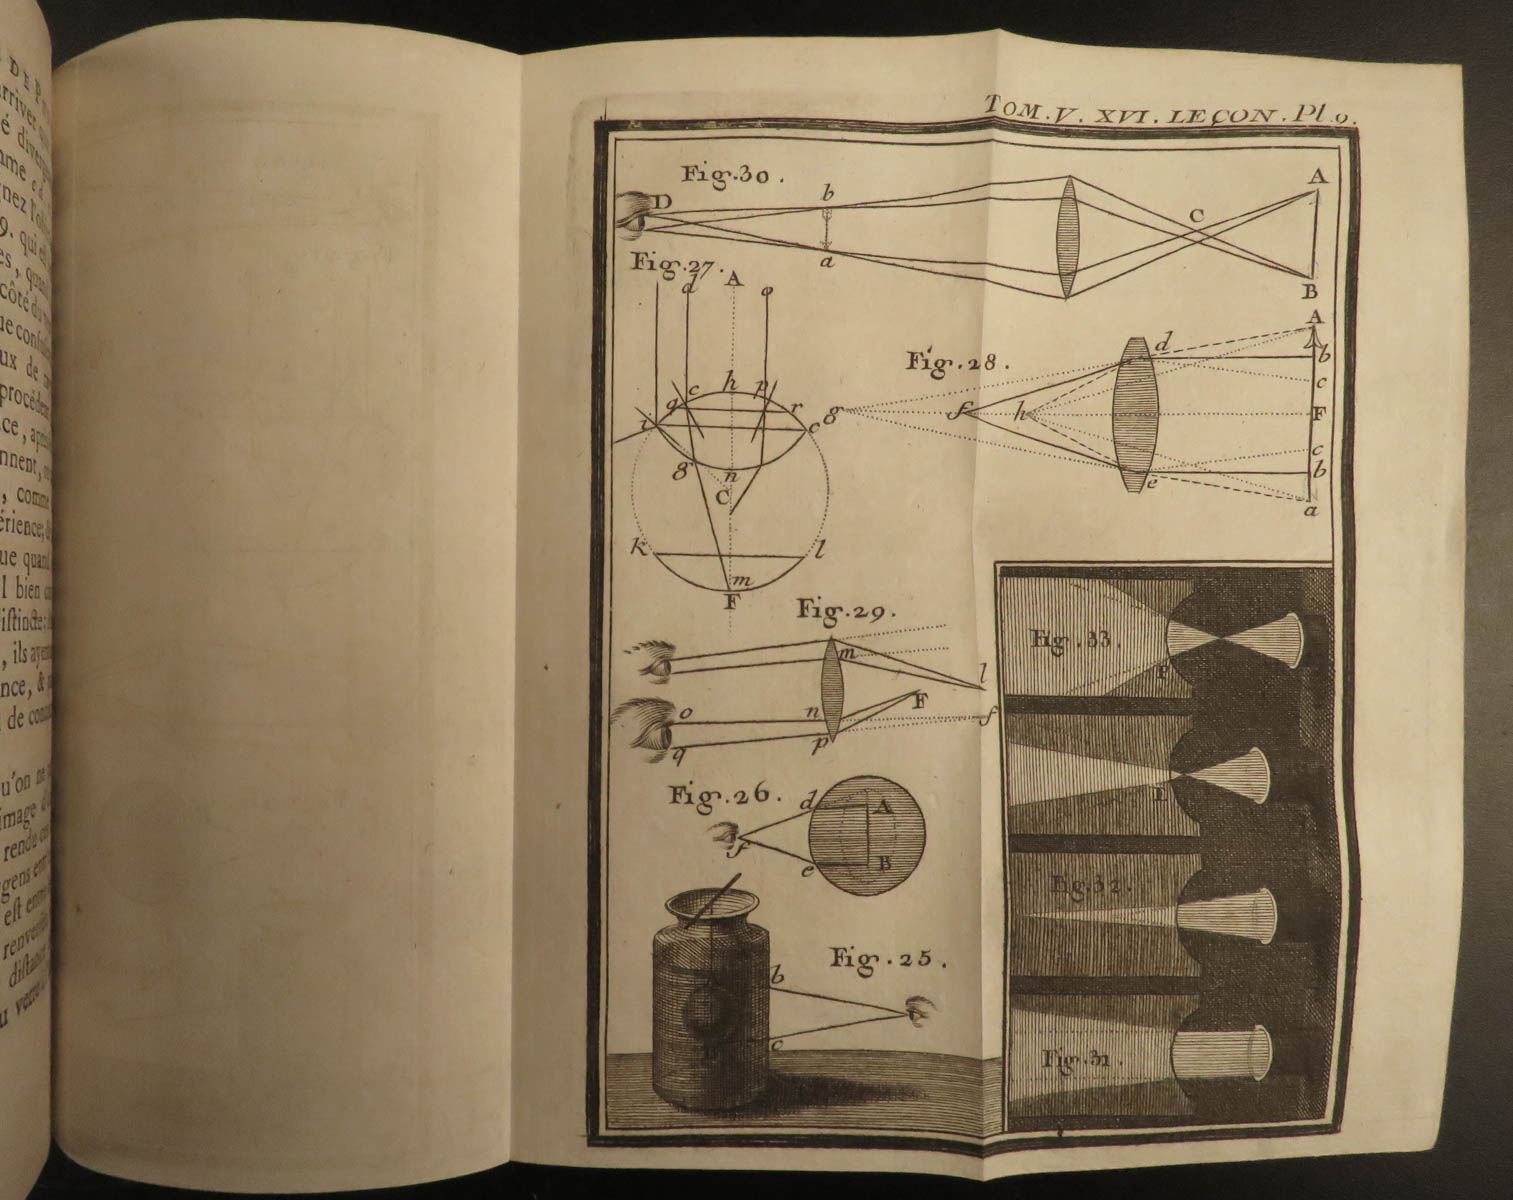 TOM. V. XVI. LEÇON. Pl. 9.
Fig. 30.
D
b
a
C
A
B
Fig. 27.
d
A
o
q
c
h
p
r
i
e
g
n
C
k
l
m
F
Fig. 28.
d
A
b
c
g
f
h
F
c
b
e
a
Fig. 29.
m
l
F
o
n
f
q
p
Fig. 26.
d
A
f
e
B
Fig. 25.
b
c
Fig. 33.
Fig. 32.
Fig. 31.
DE P
arriver
é diverg
mme e d
gnez l'ob
9. qui e
es, quan
côté du
ue confu
ux de
procéden
nce, apr
nnent,
, comme
érience;
ue quand
l bien
istincte;
, ils aye
nce, &
u de con
u'on ne
image d'
rendu
gens
est en
renver
distan
u verre